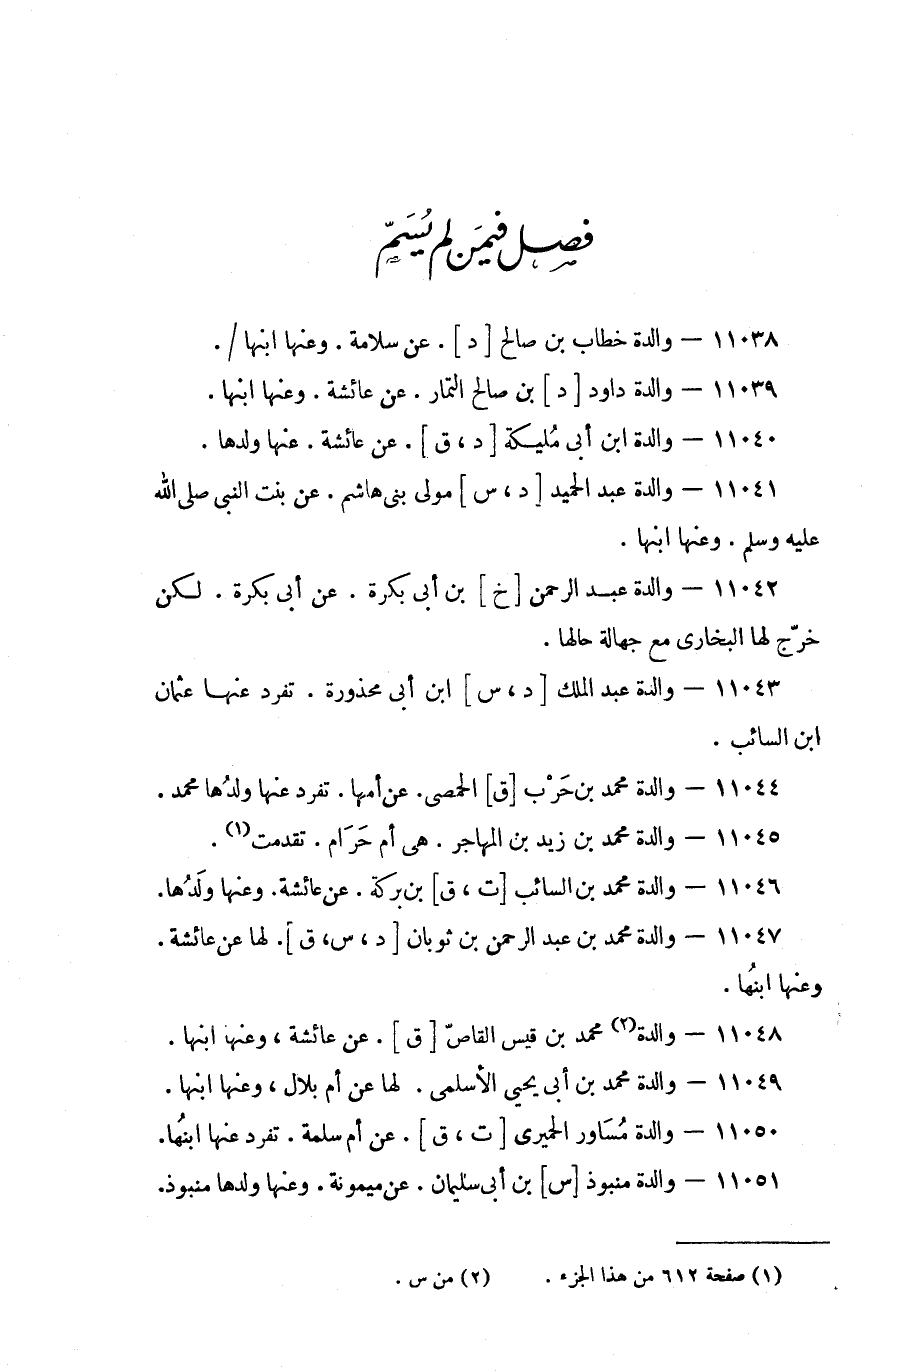 فصل فيمَن لم يُسَمّ
١١٠٣٨ — والدة خطاب بن صالح [ د ] . عن سلامة . وعنها ابنها / .
١١٠٣٩ — والدة داود [ د ] بن صالح التمار . عن عائشة . وعنها ابنها .
١١٠٤٠ — والدة ابن أبى مُليكة [ د ، ق ] . عن عائشة . عنها ولدها .
١١٠٤١ — والدة عبد الحميد [ د ، س ] مولى بنى هاشم . عن بنت النبى صلى الله
عليه وسلم . وعنها ابنها .
١١٠٤٢ — والدة عبد الرحمن [ خ ] بن أبى بكرة . عن أبى بكرة . لكن
خرّج لها البخارى مع جهالة حالها .
١١٠٤٣ — والدة عبد الملك [ د ، س ] ابن أبى محذورة . تفرد عنها عثمان
ابن السائب .
١١٠٤٤ — والدة محمد بن حَرْب [ق] الحمصى . عن أمها . تفرد عنها ولدُها محمد .
١١٠٤٥ — والدة محمد بن زيد بن المهاجر . هى أم حَرَام . تقدمت(١) .
١١٠٤٦ — والدة محمد بن السائب [ت ، ق] بن بركة . عن عائشة . وعنها ولَدُها.
١١٠٤٧ — والدة محمد بن عبد الرحمن بن ثوبان [ د ، س، ق ]. لها عن عائشة .
وعنها ابنُها .
١١٠٤٨ — والدة(٢) محمد بن قيس القاصّ [ ق ] . عن عائشة ، وعنها ابنها .
١١٠٤٩ — والدة محمد بن أبى يحيى الأسلمى . لها عن أم بلال ، وعنها ابنها .
١١٠٥٠ — والدة مُسَاور الحميرى [ ت ، ق ] . عن أم سلمة . تفرد عنها ابنُها.
١١٠٥١ — والدة منبوذ [س] بن أبى سليمان . عن ميمونة . وعنها ولدها منبوذ.
(١) صفحة ٦١٢ من هذا الجزء . (٢) من س .